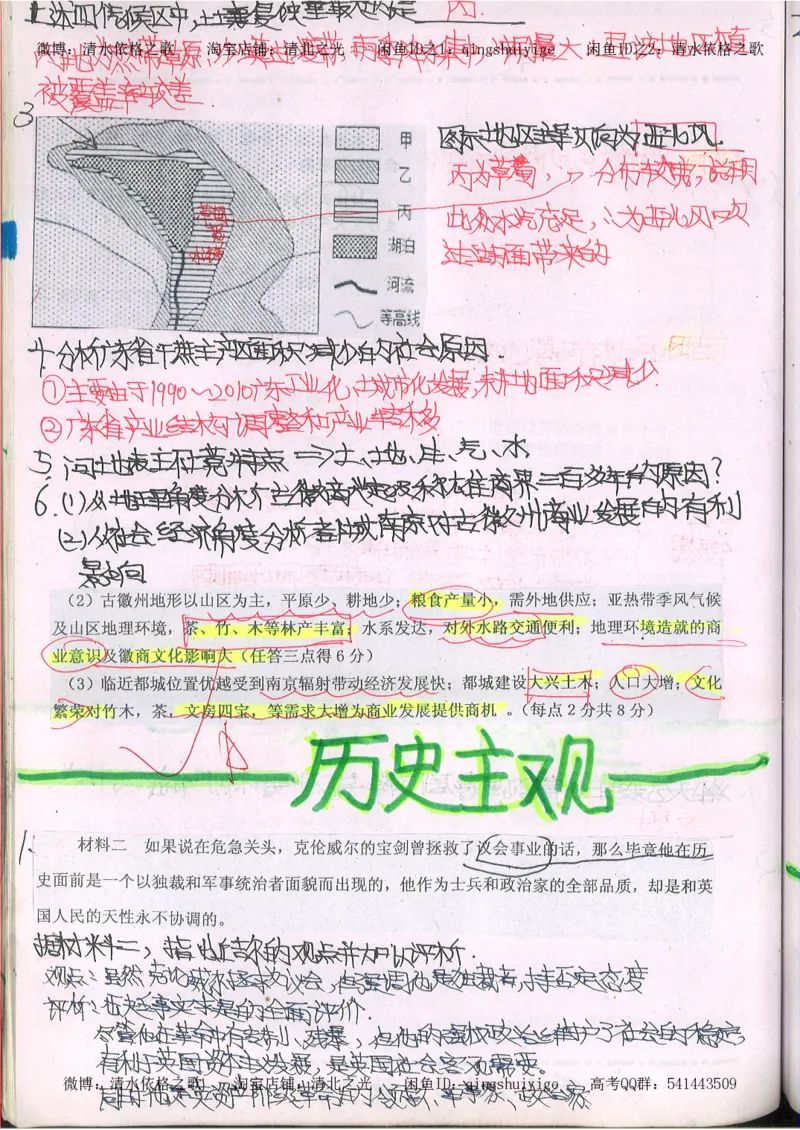 上述四气候区中,土壤复蚀量最大的是 丙.
微博:清水依格之歌 淘宝店铺:清北之光 闲鱼ID之1:qingshuiyige 闲鱼ID之2:清水依格之歌
被覆盖率较差
3
甲
乙
丙
湖泊
河流
等高线
图示地区主导风向为西北风.
丙为草甸,
此处水汽充足,∴为西北风吹
过湖面带来的
十分析广东省干蔗主产区面积减少的社会原因.
①主要由于1990~2010广东工业化、城市化发展,耕地面积减少
②广东省产业结构调整
5.河地表土 特点 ⇒土、地、生、气、水
6.(1)从地理角度分析古徽商兴起及称雄商界三百多年的原因?
(2)从社会经济角度分析 南京对古徽州商业发展的有利
影响
(2)古徽州地形以山区为主,平原少、耕地少;粮食产量小,需外地供应;亚热带季风气候
及山区地理环境,茶、竹、木等林产丰富;水系发达,对外水路交通便利;地理环境造就的商
业意识及徽商文化影响大(任答三点得6分)
(3)临近都城位置优越受到南京辐射带动经济发展快;都城建设大兴土木;人口大增;文化
繁荣对竹木,茶,文房四宝,等需求大增为商业发展提供商机 。(每点2分共8分)
历史主观
1. 材料二 如果说在危急关头,克伦威尔的宝剑曾拯救了议会事业的话,那么毕竟他在历
史面前是一个以独裁和军事统治者面貌而出现的,他作为士兵和政治家的全部品质,却是和英
国人民的天性永不协调的。
据材料二,指出 的观点并加以评析.
观点:虽然克伦威尔拯救议会,但强调他是独裁者,持否定态度
评析: 实事求是的全面评价.
尽管他在革命中有专制、残暴,但他的强权政治维护了社会的稳定,
有利于英国资本主义发展,是英国社会客观需要。
微博:清水依格之歌 淘宝店铺:清北之光 闲鱼ID:qingshuiyige 高考QQ群:541443509
同时他是资产阶级革命的领导人、军事家、政治家